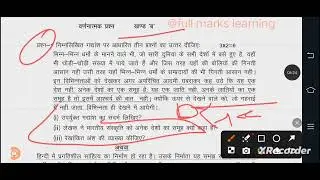 @full marks learning
वर्णनात्मक प्रश्न खण्ड 'ब'
प्रश्न- निम्नलिखित गद्यांश पर आधारित तीन प्रश्नों का उत्तर दीजिए: 3x2=6
भिन्न-भिन्न धर्मों के मानने वाले भी, जो सारी दुनिया के सभी देशों में बसे हुए हैं, यहाँ
भी थोड़ी-थोड़ी संख्या में पाये जाते हैं और जिस तरह यहाँ की बोलियों की गिनती
आसान नहीं उसी तरह यहाँ भिन्न-भिन्न धर्मों के सम्प्रदायों की भी गिनती आसान नहीं।
इन विभिन्नताओं को देखकर अगर अपरिचित आदमी घबड़ाकर कह उठे कि यह एक देश
नहीं, अनेक देशों का एक समूह है, यह एक जाति नहीं, अनेक जातियों का एक
समूह है तो इसमें आश्चर्य की बात नहीं। क्योंकि ऊपर से देखने वाले को, जो गहराई
में नहीं विभिन्नता ही देखने में आयेगी।
(i) उपर्युक्त गद्यांश का सन्दर्भ लिखिए?
(ii) लेखक ने भारतीय संस्कृति को अनेक देशों का समूह क्यों कहा
(iii) रेखांकित अंश की व्याख्या कीजिए?
अथवा
हिन्दी में प्रगतिशील साहित्य का निर्माण हो रहा है। उसके निर्माता यह समझ
XRecorder